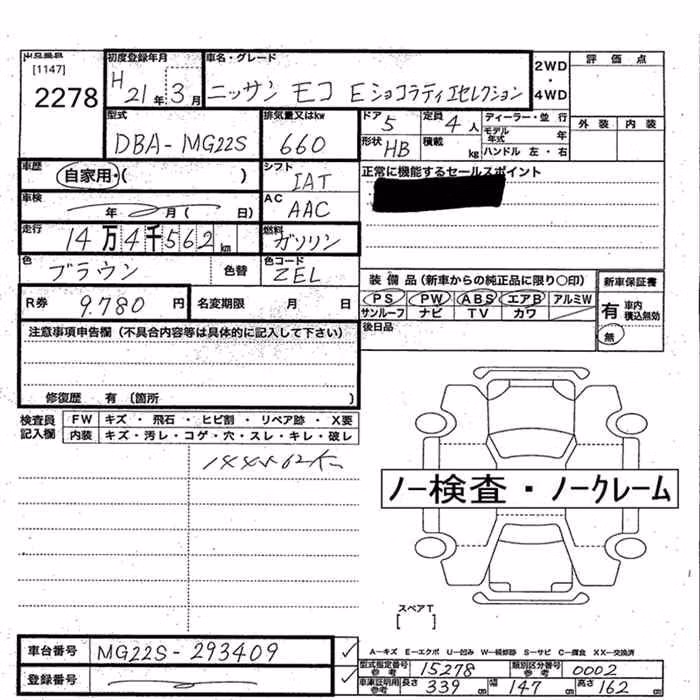 [1147]
2278
初度登録年月
H 21年 3月
車名・グレード
ニッサン モコ E ショコラティエセレクション
2WD
・
4WD
評価点
外装 内装
型式
DBA-MG22S
排気量又はkw
660
ドア 5
定員 4人
ディーラー・並行
モデル年式 年
形状 HB
積載 kg
ハンドル 左・右
車歴
自家用・( )
シフト
IAT
正常に機能するセールスポイント
車検
年 月( 日)
AC
AAC
走行
14万4千562km
燃料
ガソリン
色
ブラウン
色替
色コード
ZEL
装備品(新車からの純正品に限り○印)
PS PW ABS エアB アルミW
サンルーフ ナビ TV カワ
後日品
新車保証書
有
無
車内積込無効
R券 9.780円
名変期限 月 日
注意事項申告欄(不具合内容等は具体的に記入して下さい)
修復歴 有(箇所 )
検査員記入欄
FW キズ・飛石・ヒビ割・リペア跡・X要
内装 キズ・汚レ・コゲ・穴・スレ・キレ・破レ
144562K
ノー検査・ノークレーム
スペアT
[ ]
A-キズ E-エクボ U-凹み W-補修跡 S-サビ C-腐食 XX-交換済
車台番号 MG22S-293409 ✓
登録番号 ✓
型式指定番号参考 15278
類別区分番号参考 0002
車庫証明用参考 長さ 339cm 幅 147 高さ 162cm